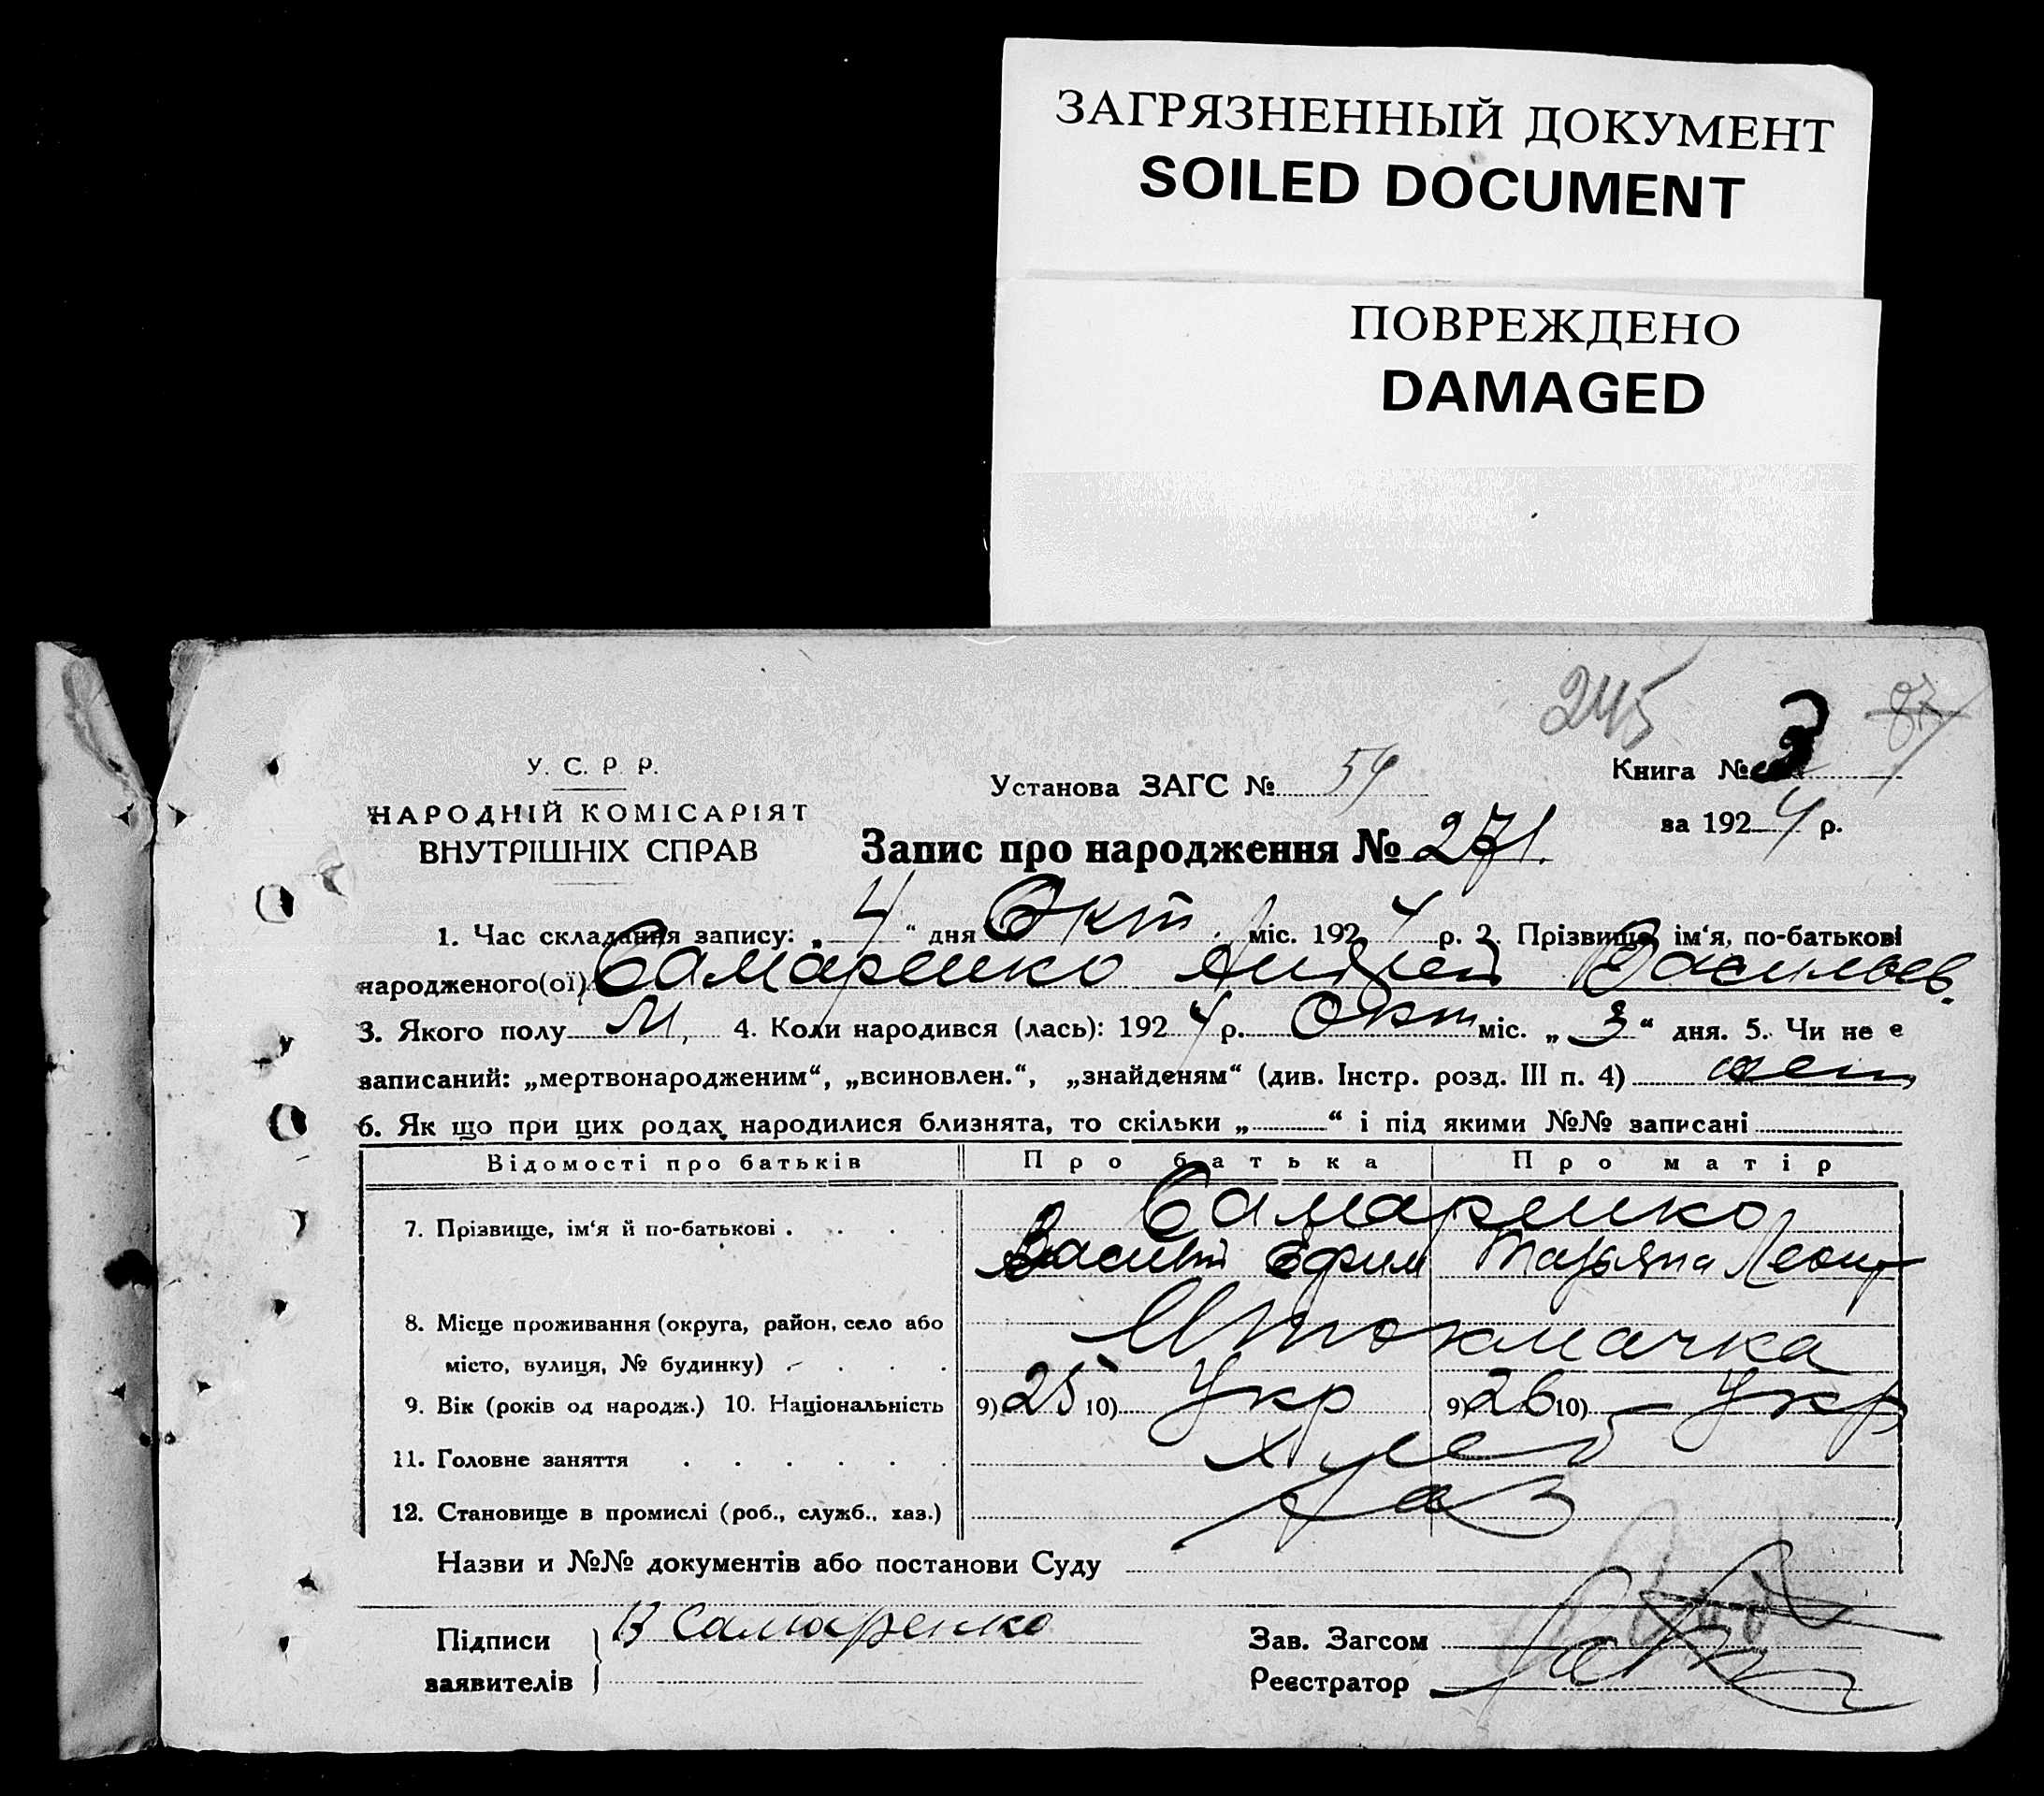 ЗАГРЯЗНЕННЫЙ ДОКУМЕНТ
SOILED DOCUMENT
ПОВРЕЖДЕНО
DAMAGED
245 87
У. С. Р. Р.
НАРОДНІЙ КОМІСАРІЯТ
ВНУТРІШНІХ СПРАВ
Установа ЗАГС № 59
Книга № 3
за 1924 р.
Запис про народження № 271.
1. Час складання запису: „4“ дня Окт. міс. 1924 р. 2. Прізвище, ім‘я, по-батькові
народженого(ої) Самаренко Андрей Васильев.
3. Якого полу М. 4. Коли народився (лась): 1924 р. Окт міс. „3“ дня. 5. Чи не є
записаний: „мертвонародженим“, „всиновлен.“, „знайденям“ (див. Інстр. розд. III п. 4)
6. Як що при цих родах народилися близнята, то скільки „ “ і під якими №№ записані
Відомості про батьків Про батька Про матір
7. Прізвище, ім‘я й по-батькові . . . . Самаренко
Василий Ефим Татьяна Леонт
8. Місце проживання (округа, район, село або
місто, вулиця, № будинку) . . . . Мтокмачка
9. Вік (років од народж.) 10. Національність 9) 25 10) Укр 9) 26 10) Укр
11. Головне заняття . . . . . . Хлеб
12. Становище в промислі (роб., служб., хаз.) Хаз
Назви и №№ документів або постанови Суду
Підписи
заявителів
В Самаренко
Зав. Загсом
Реєстратор